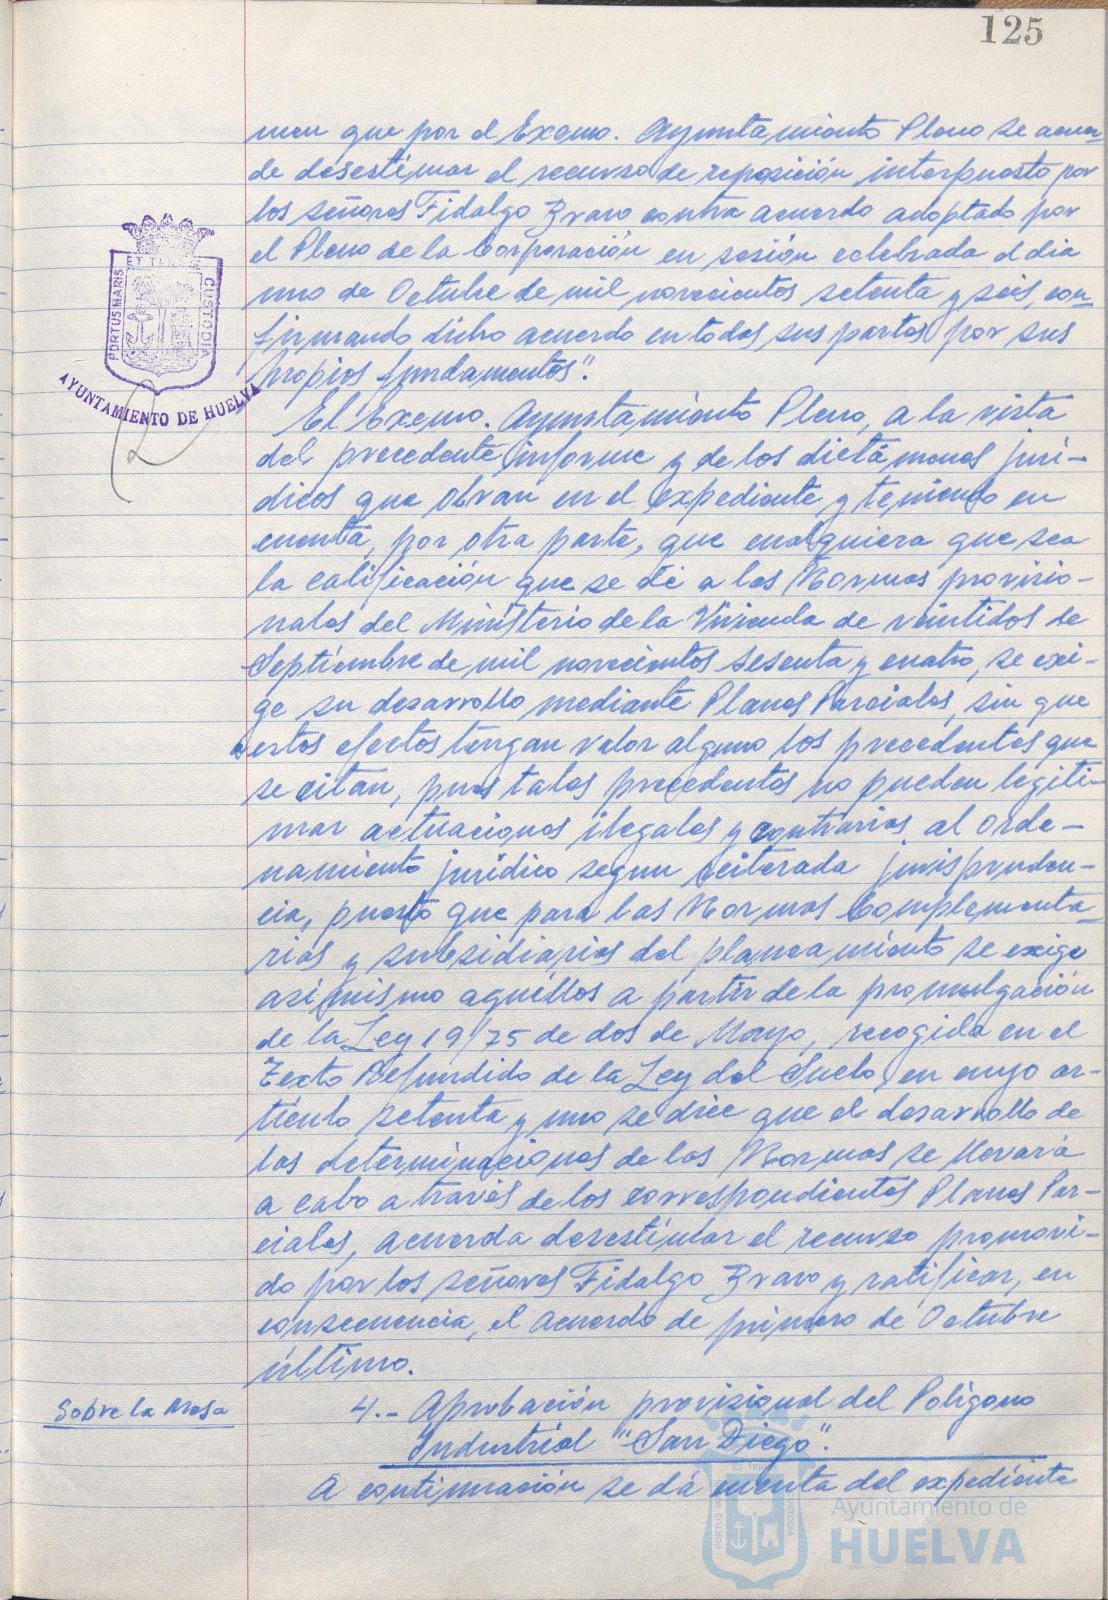 125
men que por el Excmo. Ayuntamiento Pleno se acuer-
de desestimar el recurso de reposición interpuesto por
los señores Fidalgo Bravo contra acuerdo adoptado por
el Pleno de la Corporación en sesión celebrada el dia
uno de Octubre de mil novecientos setenta y seis, con-
firmando dicho acuerdo en todas sus partes por sus
propios fundamentos".
PORTUS MARIS ET TERRAE CUSTODIA
AYUNTAMIENTO DE HUELVA
El Excmo. Ayuntamiento Pleno, a la vista
del precedente informe y de los dictámenes jurí-
dicos que obran en el expediente y teniendo en
cuenta, por otra parte, que cualquiera que sea
la calificación que se dé a las Normas provisio-
nales del Ministerio de la Vivienda de veintidos de
Septiembre de mil novecientos sesenta y cuatro, se exi-
ge su desarrollo mediante Planes Parciales, sin que
a estos efectos tengan valor alguno los precedentes que
se citan, pues tales precedentes no pueden legiti-
mar actuaciones ilegales y contrarias al orde-
namiento jurídico segun reiterada jurispruden-
cia, puesto que para las Normas Complementa-
rias y subsidiarias del planeamiento se exige
asi mismo aquéllos a partir de la promulgación
de la Ley 19/75 de dos de Mayo, recogida en el
Texto Refundido de la Ley del Suelo, en cuyo ar-
tículo setenta y uno se dice que el desarrollo de
las determinaciones de las Normas se llevará
a cabo a través de los correspondientes Planes Par-
ciales, acuerda desestimar el recurso promovi-
do por los señores Fidalgo Bravo y ratificar, en
consecuencia, el acuerdo de primero de Octubre
último.
Sobre la Mesa
4.- Aprobación provisional del Polígono
Industrial "San Diego".
A continuación se dá cuenta del expediente
Ayuntamiento de
HUELVA